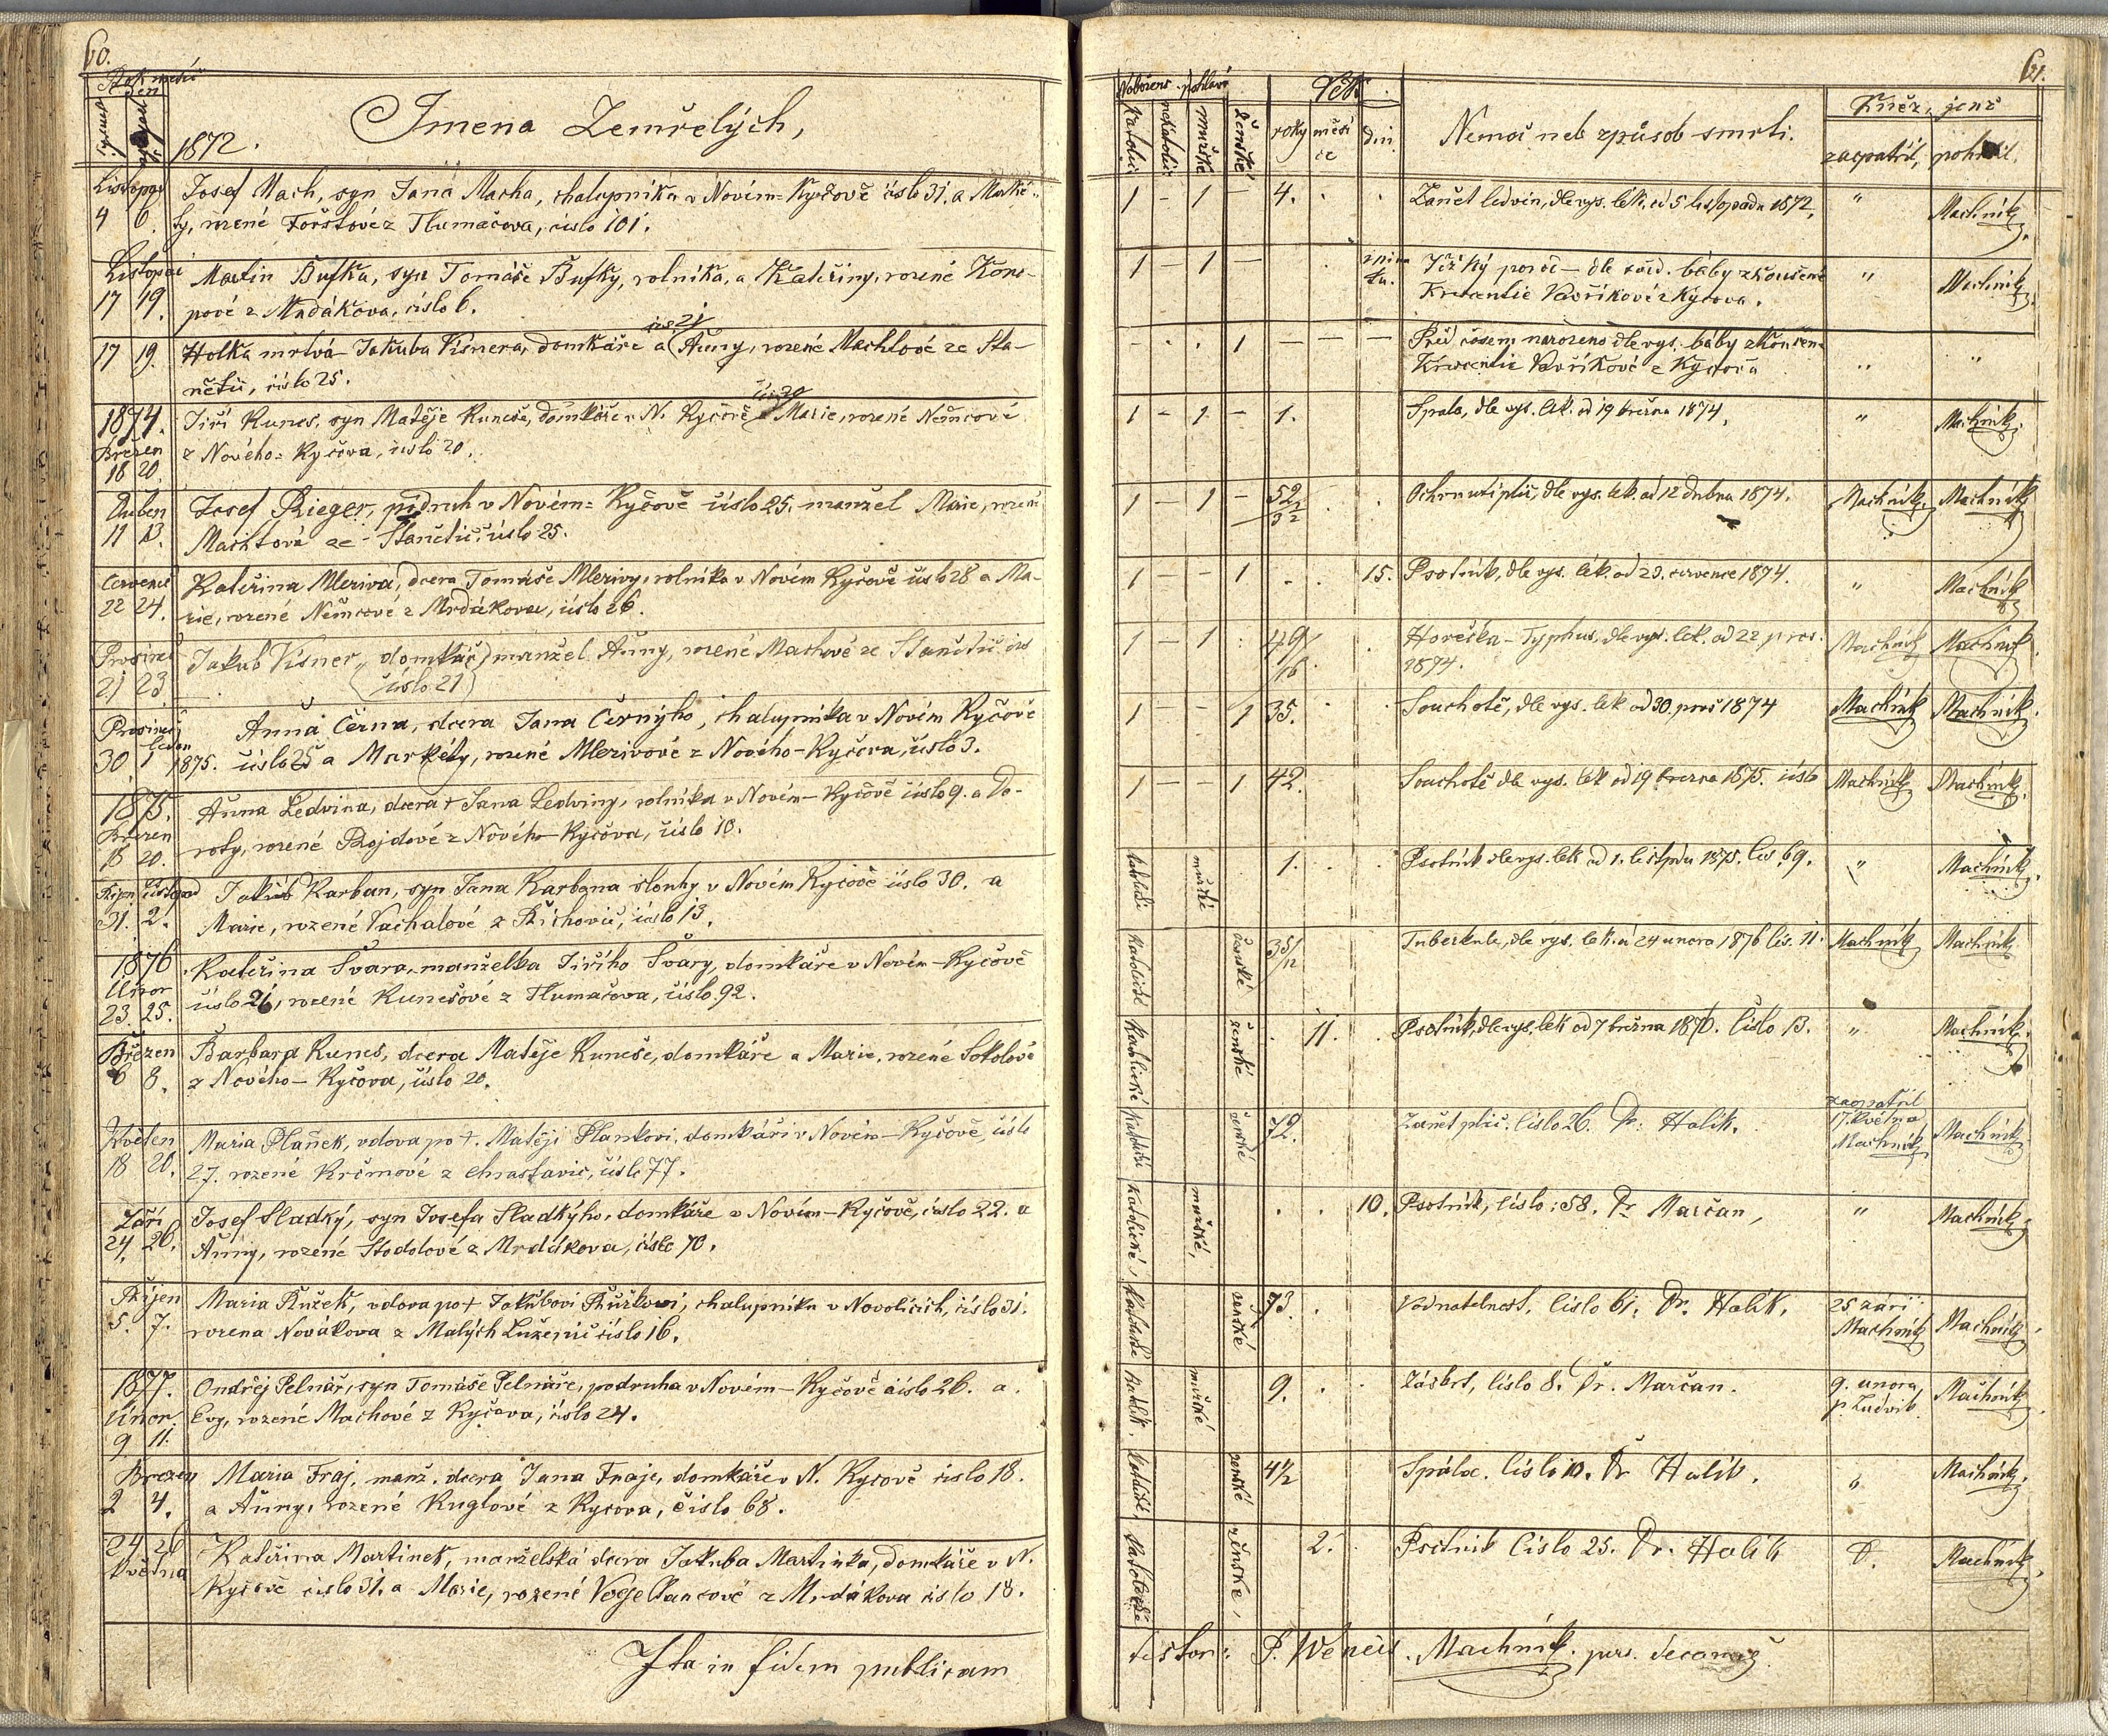 60.
Rok měsíc
Den
1872.
Jmena Zemřelých,
Listopad Josef Mach, syn Jana Macha, chalupníka v Novém-Kyčově číslo 31. a Marké-
4 6. ty, rozené Forstové z Tlumačova, číslo 101.
Listopad Martin Buřka, syn Tomáše Buřky, rolníka, a Kateřiny, rozené Kono-
17 19. pové z Mrdákova, číslo 6.
čís 21
17 19. Holka mrtvá Jakuba Vísnera, domkáře a Anny, rozené Machtové ze Sta-
nětic, číslo 25.
čís 20
1874. Jiří Kunes, syn Matěje Kuneše, domkáře v N. Kyčově a Marie, rozené Němcové
Březen z Nového-Kyčova, číslo 20.
18 20.
Duben Josef Rieger, podruh v Novém-Kyčově číslo 25. manžel Marie, rozené
11 13. Machtové ze Stanětic, číslo 25.
Červenec Kateřina Mleziva, dcera Tomáše Mlezivy, rolníka v Novém Kyčově číslo 28 a Ma-
22 24. rie, rozené Němcové z Mrdákova, číslo 26.
Prosinec Jakub Vísner, domkář, manžel Anny, rozené Machové ze Stanětic čís
21 23 (číslo 21)
Prosinec Anna Černa, dcera Jana Černýho, chalupníka v Novém Kyčově
leden
30 1 1875. číslo 25 a Markéty, rozené Mlezivové z Nového-Kyčova, číslo 3.
1875. Anna Ledvina, dcera + Jana Ledviny, rolníka v Novém-Kyčově číslo 9. a Do-
Březen
18 20. roty, rozené Rojdové z Nového-Kyčova, číslo 10.
Říjen Listopad Jakub Karban, syn Jana Karbana slouhy v Novém Kyčově číslo 30. a
31. 2. Marie, rozené Vachalové z Říchovic, číslo 13.
1876 Kateřina Švara, manželka Jiřího Švary, domkáře v Novém-Kyčově
Únor číslo 26, rozené Kunešové z Tlumačova, číslo 92.
23. 25.
Březen Barbara Kunes, dcera Matěje Kuneše, domkáře a Marie, rozené Sokolové
6 8. z Nového-Kyčova, číslo 20.
Květen Maria Planek, vdova po +. Matěji Plankovi, domkáři v Novém-Kyčově, číslo
18 20. 27. rozené Krčmové z Chrastavic, číslo 77.
Září Josef Sladký, syn Josefa Sladkýho, domkáře v Novém-Kyčově, číslo 22. a
24. 26. Anny, rozené Stodolové z Mrdákova, číslo 70.
Říjen Maria Růžek, vdova po + Jakubovi Růžkovi, chalupníku v Novolicich, číslo 31.
5. 7. rozena Novákova z Malých Luženic číslo 16.
1877. Ondřej Pelnář, syn Tomáše Pelnáře, podruha v Novém-Kyčově číslo 26. a
Únor. Evy, rozené Machové z Kyčova, číslo 24.
9 11.
Brezen Maria Fraj, manž. dcera Jana Fraje, domkáře v N. Kyčově číslo 18.
2 4. a Anny, rozené Kuglové z Kyčova, číslo 68.
24 26 Kateřina Martinek, manželská dcera Jakuba Martinka, domkáře v N.
Května Kyčově číslo 31. a Marie, rozené Vogeltancové z Mrdákova číslo 18.
Ita in fidem publicam
61.
Nábožens. pohlaví Věk.
Nemoc neb způsob smrti.
Kněz, jenž
katolic nekatolic mužské ženské roky měsíce dni
zaopatřil, pohřbil.
1 - 1 4. Zánět ledvin, dle vys. lék. od 5 listopadu 1872. " Machník
1 - 1 - Těžký porod - dle svěd. báby zkoušené " Machník
Krescentie Vavříkové z Kyčova.
- 1 - - - Před časem narozeno dle vys. báby zkoušené
Krescentie Vavříkové z Kyčova " "
1 - 1 - 1. Spala, dle vys. lék. od 19 března 1874. " Machník
1 - 1 - 52 Ochrnutí plic, dle vys. lék. od 12 dubna 1874. Machník Machník
1 - - 1 15. Psotník, dle vys. lék. od 23. července 1874. " Machník
1 - 1 49/16 Horečka - Typhus, dle vys. lék. od 22 pros. Machník Machník
1874.
1 - - 1 35. Souchotě, dle vys. lék od 30. pros 1874 Machník Machník
1 - - 1 42. Souchotě dle vys. lék od 19 března 1875. číslo Machník Machník
katolické mužské 1. Psotník dle vys. lék od 1. listopadu 1875. čís. 69. " Machník
katolické ženské 35/12 Tuberkule, dle vys. lék. od 24 unora 1876 čís. 11. Machník Machník
katolické ženské 11. Psotník, dle vys. lék od 7 března 1876. číslo 13. " Machník
katolické ženské 72. Zánět plic. číslo 26. Dr. Halík. zaopatřil
17. Května
Machník Machník
katolické, mužské, 10. Psotník, číslo: 58. Dr Marčan, " Machník
katolické ženské 73. Vodnatelnost, číslo 61. Dr. Halík. 25 září
Machník Machník
katolik. mužské 9. Záškrt, číslo 8. Dr. Marčan. 9. unora
p. Ludvík Machník
katolické, ženské 4½ Spála. číslo 10. Dr Halík. " Machník
katolické ženské, 2. Psotník číslo 25. Dr. Halík Machník
testor: P. Wences. Machník. pers. decanus